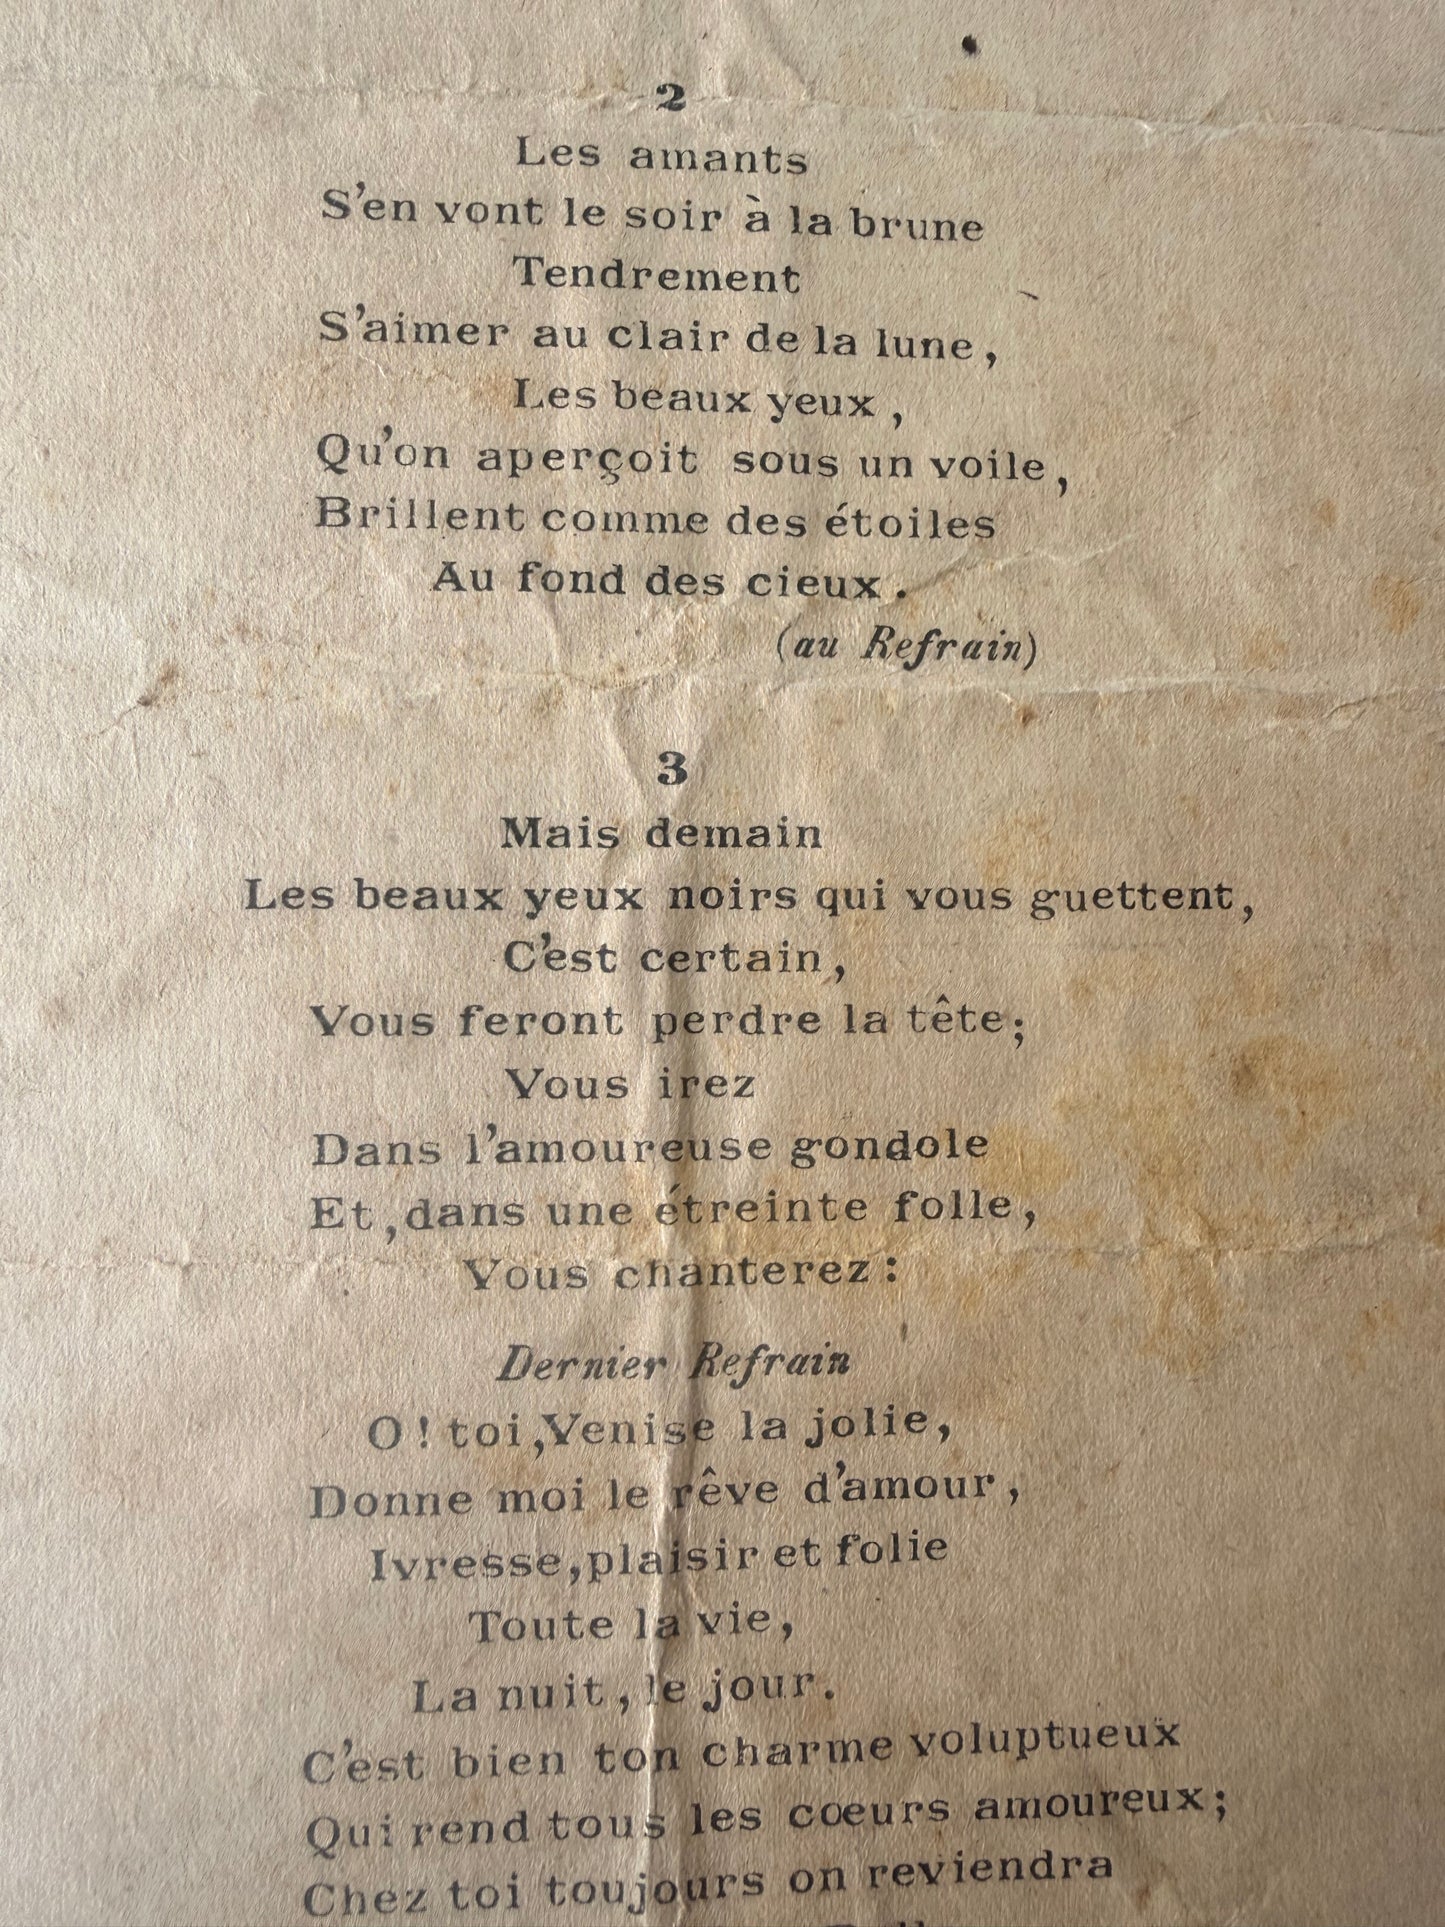 2
Les amants
S'en vont le soir à la brune
Tendrement
S'aimer au clair de la lune,
Les beaux yeux,
Qu'on aperçoit sous un voile,
Brillent comme des étoiles
Au fond des cieux.
(au Refrain)
3
Mais demain
Les beaux yeux noirs qui vous guettent,
C'est certain,
Vous feront perdre la tête;
Vous irez
Dans l'amoureuse gondole
Et, dans une étreinte folle,
Vous chanterez:
Dernier Refrain
O! toi, Venise la jolie,
Donne moi le rêve d'amour,
Ivresse, plaisir et folie
Toute la vie,
La nuit, le jour.
C'est bien ton charme voluptueux
Qui rend tous les cœurs amoureux;
Chez toi toujours on reviendra